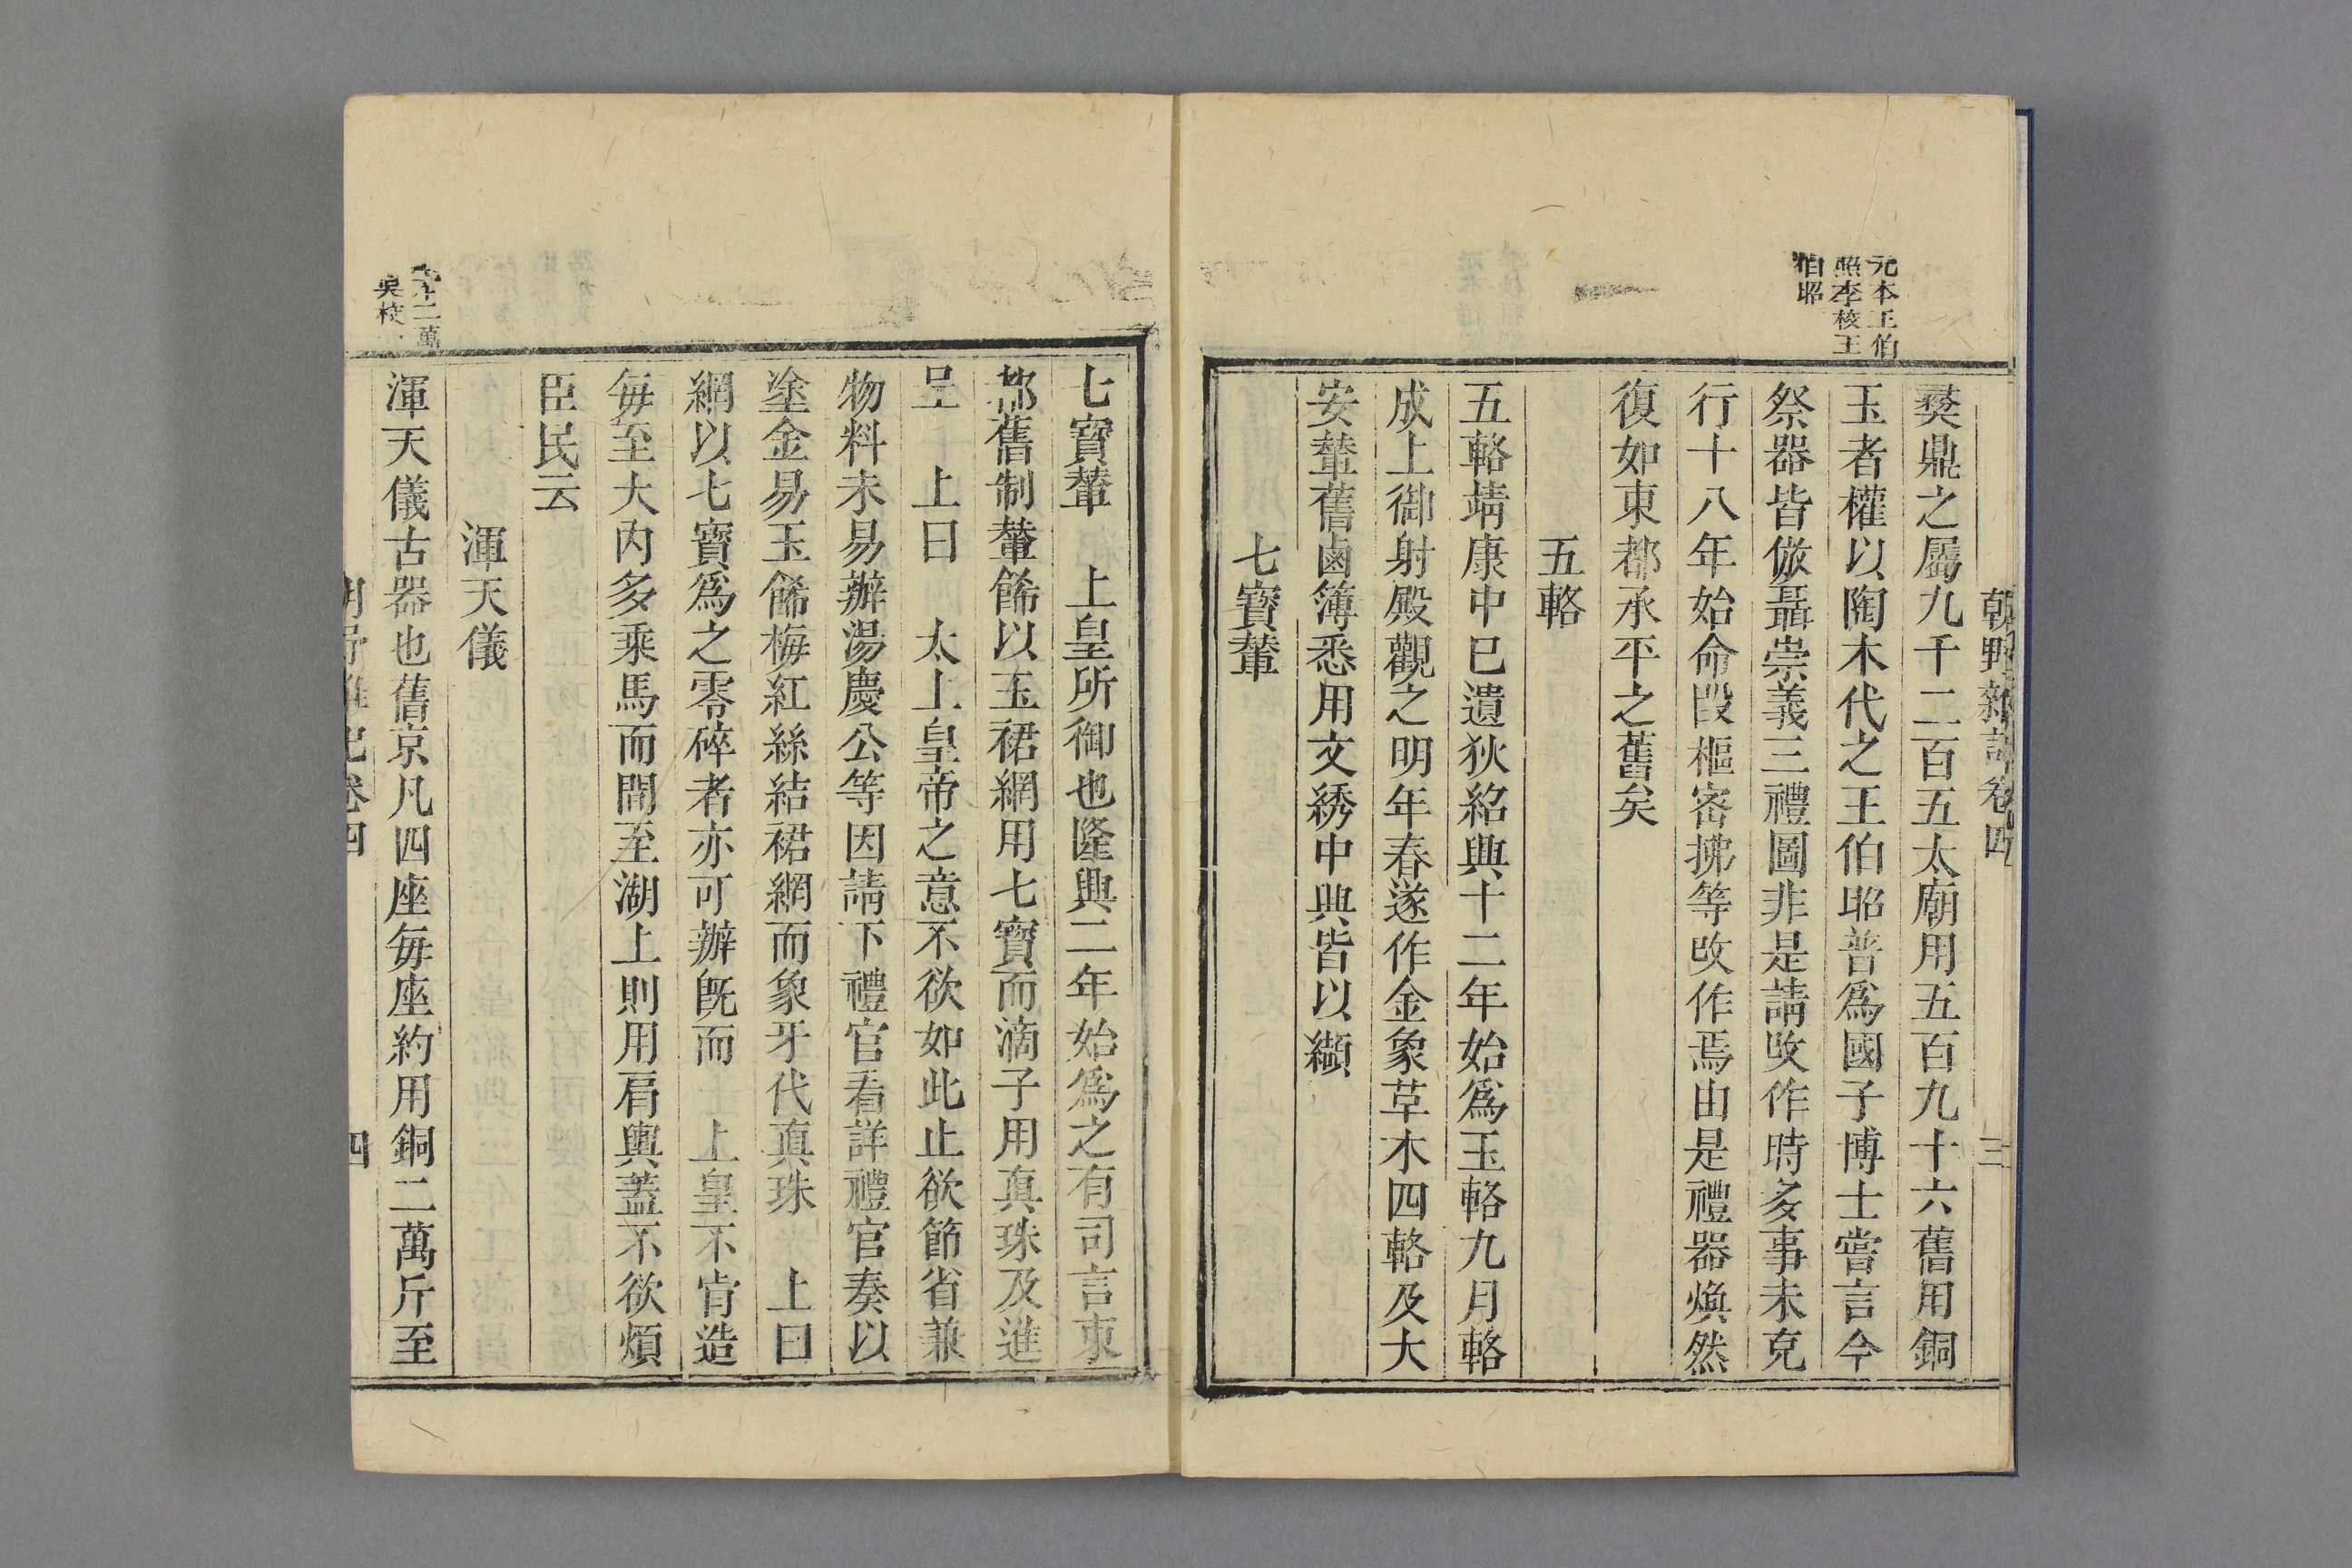 朝野雜記卷四
三
元本王伯
照李校王
伯昭
彛鼎之屬九千二百五太廟用五百九十六舊用銅
玉者權以陶木代之王伯昭普爲國子博士嘗言今
祭器皆倣聶崇義三禮圖非是請改作時多事未克
行十八年始命段樞密拂等改作焉由是禮器煥然
復如東都承平之舊矣
五輅
五輅靖康中已遺狄紹興十二年始爲玉輅九月輅
成上御射殿觀之明年春遂作金象草木四輅及大
安輦舊鹵簿悉用文綉中興皆以纈
七寶輦
七寶輦 上皇所御也隆興二年始爲之有司言東
都舊制輦餙以玉裙網用七寶而滴子用真珠及進
呈 上曰 太上皇帝之意不欲如此止欲節省兼
物料未易辦湯慶公等因請下禮官看詳禮官奏以
塗金易玉餙梅紅絲結裙網而象牙代真珠 上曰
網以七寶爲之零碎者亦可辦旣而 上皇不肯造
每至大内多乘馬而間至湖上則用肩輿蓋不欲煩
臣民云
渾天儀
二萬
吳校
渾天儀古器也舊京凡四座每座約用銅二萬斤至
卷四
四